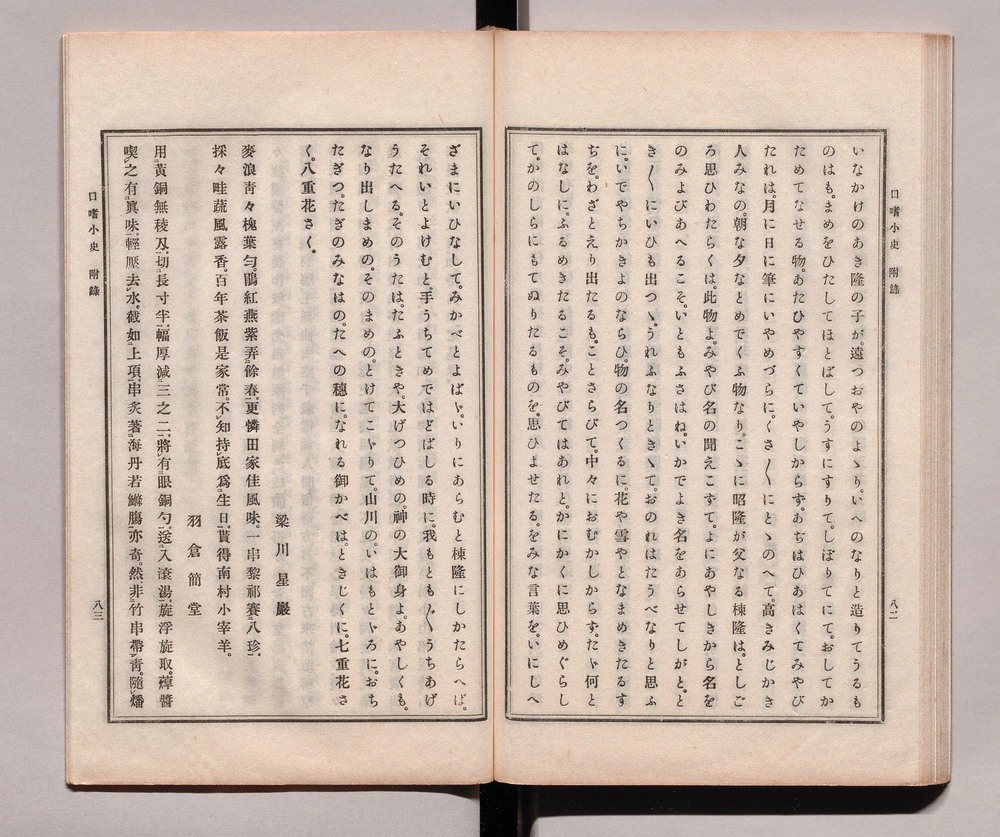 口嗜小史　附錄
八二
いなかけのあき隆の子が。遠つおやのよゝり。いへのなりと造りてうるも
のはも。まめをひたしてほとばして。うすにすりて。しぼりてにて。おしてか
ためてなせる物。あたひやすくていやしからず。あぢはひあはくてみやび
たれは。月に日に筆にいやめづらに。くさ〴〵にとゝのへて。高きみじかき
人みなの。朝な夕なとめでくふ物なり。こゝに昭隆が父なる棟隆は。としご
ろ思ひわたらくは。此物よ。みやび名の聞えこすて。よにあやしきから名を
のみよびあへるこそ。いともふさはね。いかでよき名をあらせてしがと。と
き〴〵にいひも出つゝ。うれふなりときゝて。おのれはたうべなりと思ふ
に。いでやちかきよのならひ。物の名つくるに。花や雪やとなまめきたるす
ぢを。わざとえり出たるも。ことさらびて。中々におむかしからず。たゞ何と
はなしに。ふるめきたるこそ。みやびてはあれと。かにかくに思ひめぐらし
て。かのしらにもてぬりたるものを。思ひよせたる。をみな言葉を。いにしへ
ざまにいひなして。みかべとよばゞ。いりにあらむと棟隆にしかたらへば。
それいとよけむと。手うちてめではどばしる時に。我もとも〴〵うちあげ
うたへる。そのうたは。たふときや。大げつひめの。神の大御身よ。あやしくも。
なり出しまめの。そのまめの。とけてこゞりて。山川の。いはもとゞろに。おち
たぎつ。たぎのみなはの。たへの穗に。なれる御かべは。ときじくに。七重花さ
く。八重花さく。
梁川星巖
麥浪靑々槐葉勻。鵑紅燕紫弄餘春。更憐田家佳風味。一串黎祁賽八珍。
採々畦蔬風露香。百年茶飯是家常。不知持底爲生日。貰得南村小宰羊。
羽倉簡堂
用黃銅無稜刄。切長寸半。幅厚減三之二。將有眼銅勺。送入滾湯。旋浮旋取。蘸醬
喫之有眞味。輕壓去水。截如上項。串炙著海丹若鰷膓。亦奇。然非竹串帶靑。隨燔
口嗜小史　附錄
八三